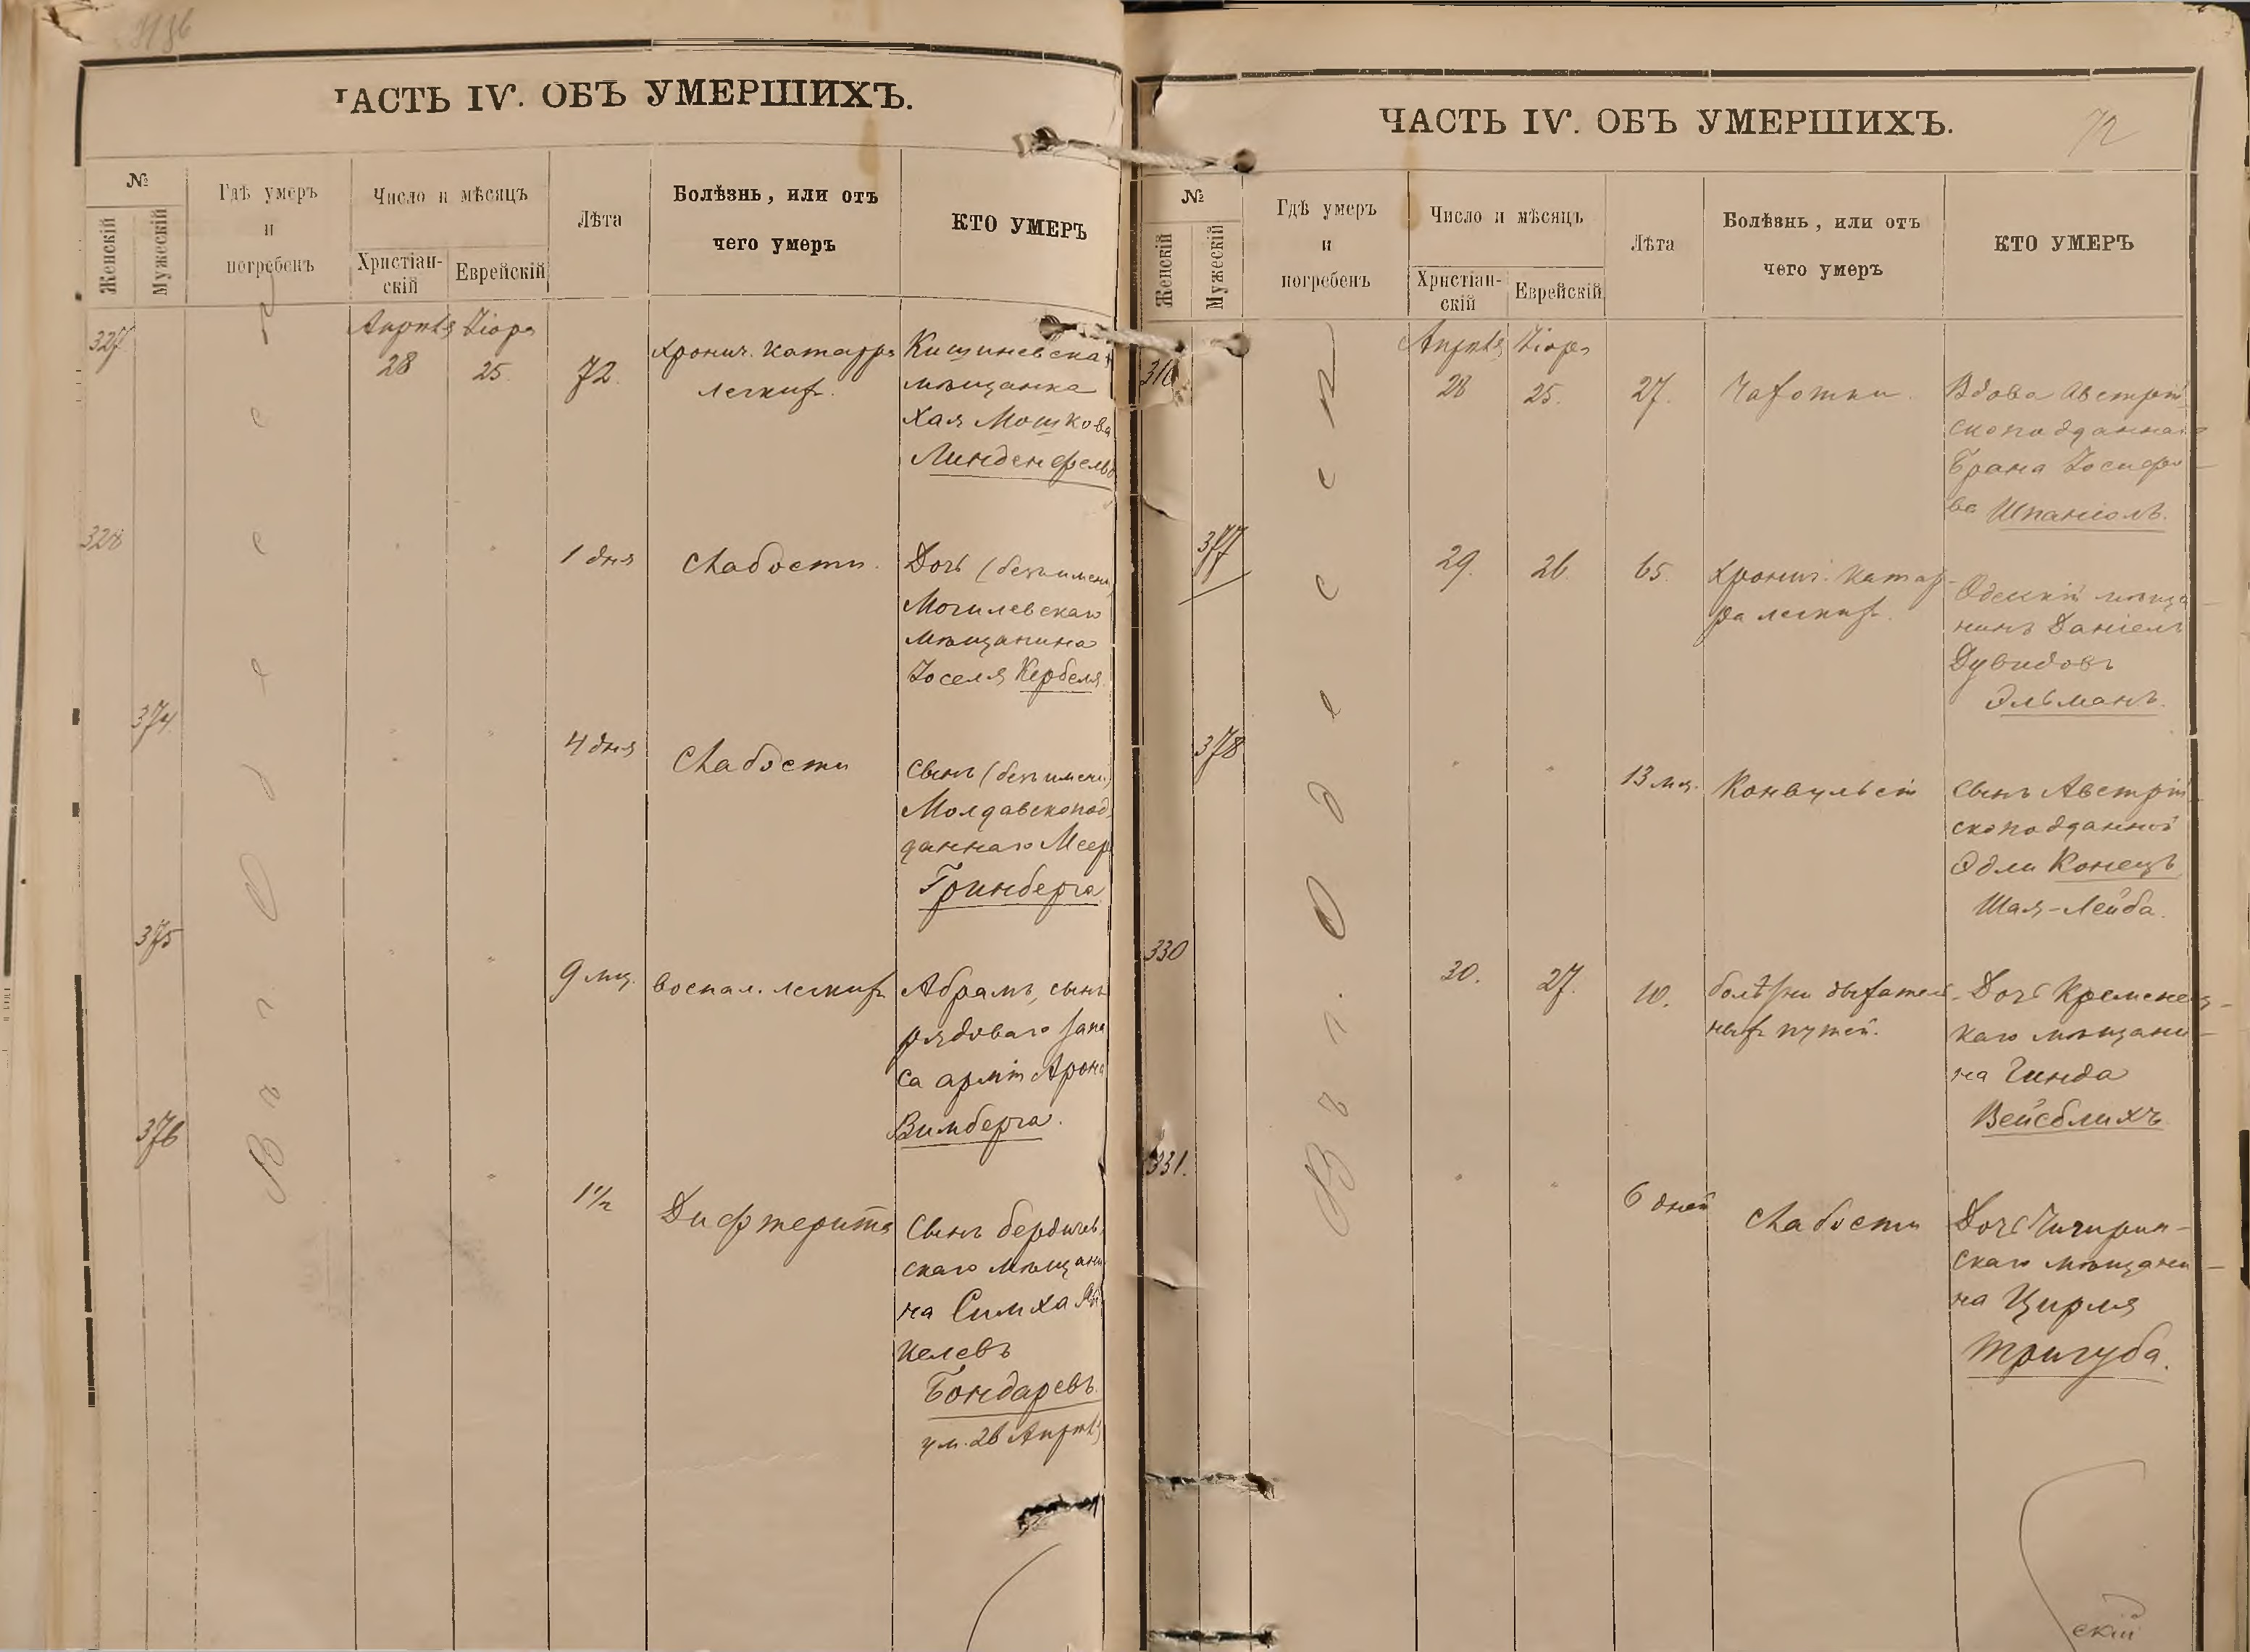 ЧАСТЬ IV. ОБЪ УМЕРШИХЪ.
№
Женскій
Мужескій
Гдѣ умеръ
и
погребенъ
Число и мѣсяцъ
Христіан-
скій
Еврейскій
Лѣта
Болѣзнь, или отъ
чего умеръ
КТО УМЕРЪ
Апрѣля Ііора
327
28
25
72.
Хронич. катарра
легкихъ.
Кишиневская
мѣщанка
Хая Мошкова
Линденфельд
328
1 дня
Слабости.
Дочь (безъимени
Могилевскаго
мѣщанина
Іоселя Кербеля
374
4 дня
Слабости
Сынъ (безъимени)
Молдавскопод
даннаго Меер
Гринберга
375
9 мц.
Воспал. легкихъ
Абрамъ, сынъ
рядоваго запа
са арміи Арона
Вимберга.
376
1 1/2
Дифтерита
Сынъ бердичев
скаго мѣщани
на Симха
келевъ
Бондаревъ.
ум. 26 Апрѣля
Въ г. Одессѣ
ЧАСТЬ IV. ОБЪ УМЕРШИХЪ.
72
№
Женскій
Мужескій
Гдѣ умеръ
и
погребенъ
Число и мѣсяцъ
Христіан-
скій
Еврейскій
Лѣта
Болѣзнь, или отъ
чего умеръ
КТО УМЕРЪ
Апрѣля Ііора
28
25.
27.
Чахотки.
Вдова Австрій
скоподданнаго
Брана Іосифо-
ва Шпаніолъ.
377
29.
26
65.
Хронич. катар-
ра легкихъ.
Одесскій мѣща-
нинъ Даніелъ
Дувидовъ
Эльманъ.
378
13 мц.
Конвульсіи
Сынъ Австрій
скоподданной
Эдли Конецъ
Шая-Лейба.
330
30.
27.
10.
болѣзни дыхатель
ныхъ путей.
Дочь Кременец-
каго мѣщани-
на Гинда
Вейсблихъ
331.
6 дней
Слабости
Дочь Чигирин-
скаго мѣщани-
на Цирля
Тригуба.
Въ г. Одессѣ
скій